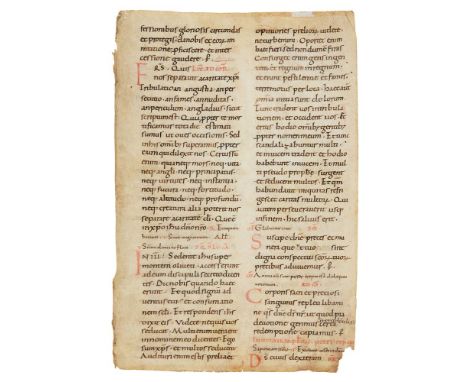 fessionibus gloriosis circundas
et protegis. da nobis et eorum imi
tatione proficere et inter
cessione gaudere. p
FRS. Quis
nos separabit a caritate xpi
Tribulatio. an angustia. an per
secutio. an fames. an nuditas.
an periculum. an gladius. Sicut
scriptum est. Quia ppter te mor
tificamur tota die. estimati
sumus ut oves occisionis. Sed
in his omnib; superamus. ppter
eum qui dilexit nos. Certus sum
enim. quia neq; mors. neq; uita.
neq; angli. neq; principatus.
neq; uirtutes. neq; instantia.
neq; futura. neq; fortitudo.
neq; altitudo. neq; profundu.
neq; creatura alia poterit nos
separare a caritate di. Que e
in xpo ihu dno nro.
Sedente ihu super
montem oliueti. accesserunt
ad eum discipuli secreto dicentes
Dic nobis quando haec
erunt. Et quod signum ad
uentus tui et consummatio
nem sedi. Et respondens ihs
dixit eis. Videte ne quis uos
seducat. Multi enim uenient
in nomine meo dicentes. Ego
sum xps. et multos seducent.
Audituri enim estis prelia et
opiniones preliorum. uidete
ne turbemini. Oportet enim
haec fieri sed nondum e finis.
Consurget enim gens in gen
tem. et regnum in regnum.
et erunt pestilentie et fames.
et terremotus per loca. haec aut
omnia initia sunt dolorum.
Tunc tradent uos in tribula
tione. et occident uos. Et
eritis hodio omnib; gentib;
ppter nomen meum. Et tunc
scandalizabuntur multi.
et inuicem tradent et hodio
habebunt inuicem. Et mul
ti pseudo pphe surgent
et seducent multos. Et qm
habundauit iniquitas refri
gescet caritas multorum. Qui
autem perseuerauerit usq;
in finem. hic saluus erit.
Suscipe dne preces et mu
nera que ut tuo sint
digna conspectui scorum
precibus adiuuemur. p
Corporis sacri et preciosi
sanguinis repleti libami
ne qs dne ds nr. ut quod pia
deuotione gerimus certa
redemptione capiamus. p
Ds cuius dextera